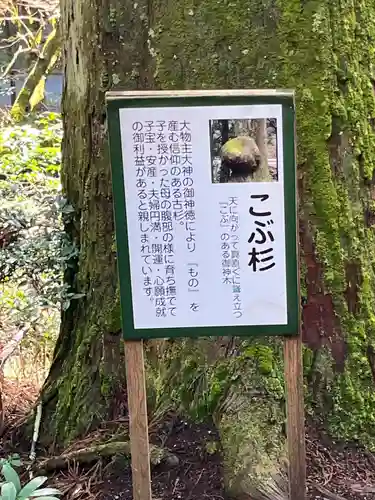 こぶ杉
天に向かって真直ぐに聳え立つ
「こぶ」のある御神木
大物主大神の御神徳により、『もの』を
産む信仰のある古杉。
子を授かった母の腹部の様に育ち撫でて
子宝・安産・夫婦円満・開運・心願成就
の御利益があると親しまれています。